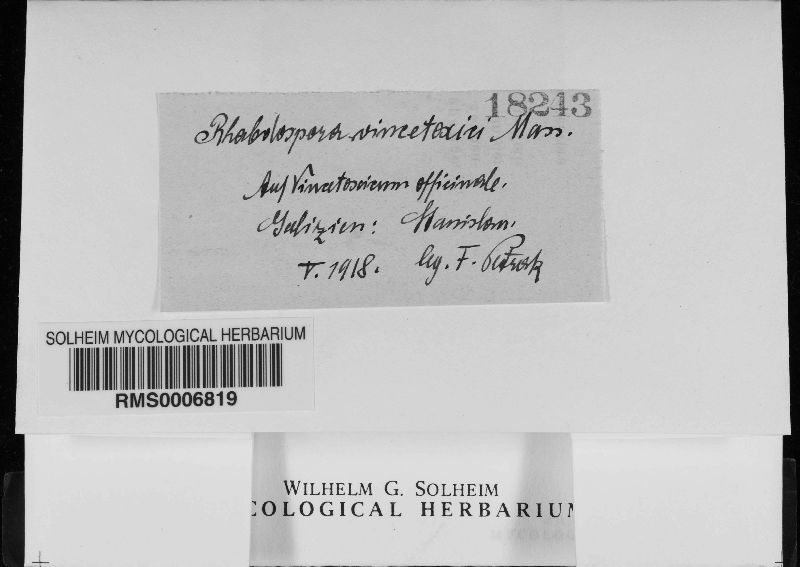 18243
Rhabdospora vincetoxici Mass.
Auf Vincetoxicum officinale.
Galizien: Stanislau.
V. 1918. leg. F. Petrak
SOLHEIM MYCOLOGICAL HERBARIUM
RMS0006819
WILHELM G. SOLHEIM
COLOGICAL HERBARIUM